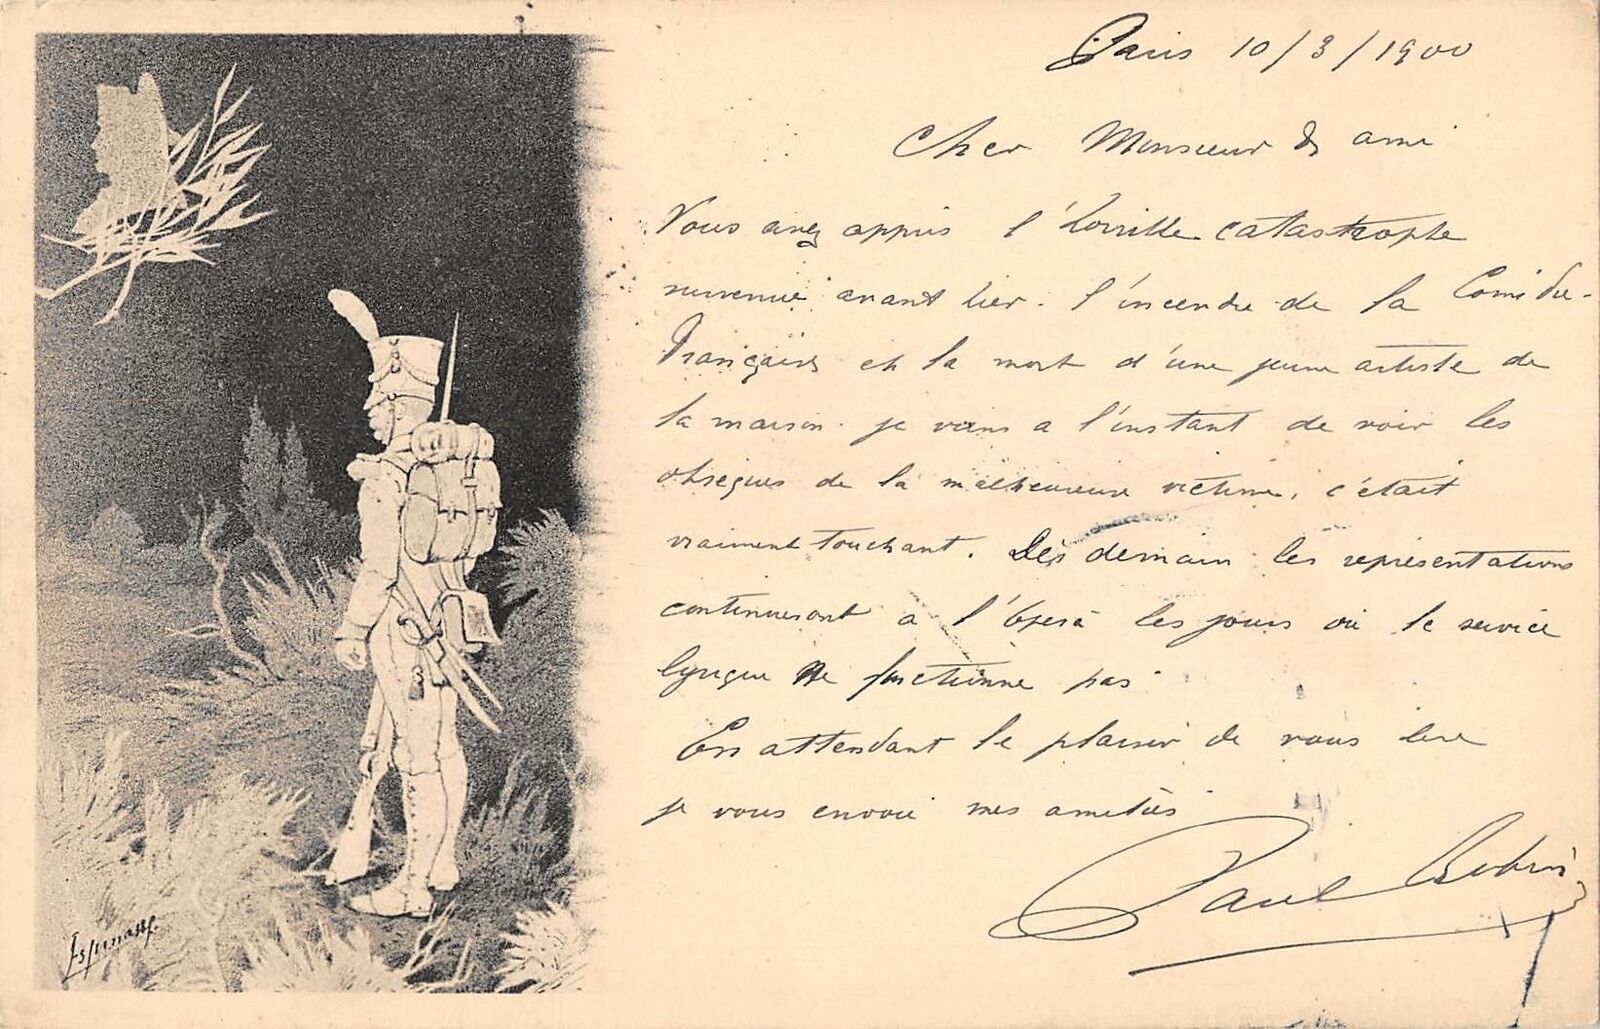 Paris 10/3/1900
Cher Monsieur & ami
Vous avez appris l'horrible catastrophe
survenue avant hier. l'incendie de la Comédie-
Française et la mort d'une jeune artiste de
la maison. je viens a l'instant de voir les
obsèques de la malheureuse victime, c'était
vraiment touchant. Dès demain les représentations
continueront a l'Opéra les jours où le service
lyrique ne fonctionne pas.
En attendant le plaisir de vous lire
je vous envoie mes amitiés
Paul Robin